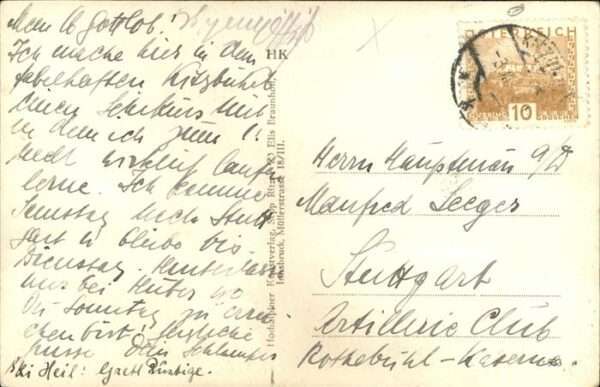 Mein lb Gottlob!
Ich mache hier in dem
fabelhaften Kitzbühel
einen Schikurs mit
in dem ich zum 1.
mal wirklich laufen
lerne. Ich komme
Samstag nach Stutt
gart u bleibe bis
Dienstag. Hinterlass
uns bei Huber wo
Du Sonntag zu errei
chen bist! Herzliche
Grüsse Dein
Ski Heil:
HK
Hochalpiner Kunstverlag, Sepp Ritzer (C) Elis Braunhoff,
Innsbruck, Müllerstrasse 18/III.
ÖSTERREICH
10
GROSCHEN
Herrn Hauptmann a/D
Manfred Seeger
Stuttgart
Artillerie Club
Rothebühl-Kaserne